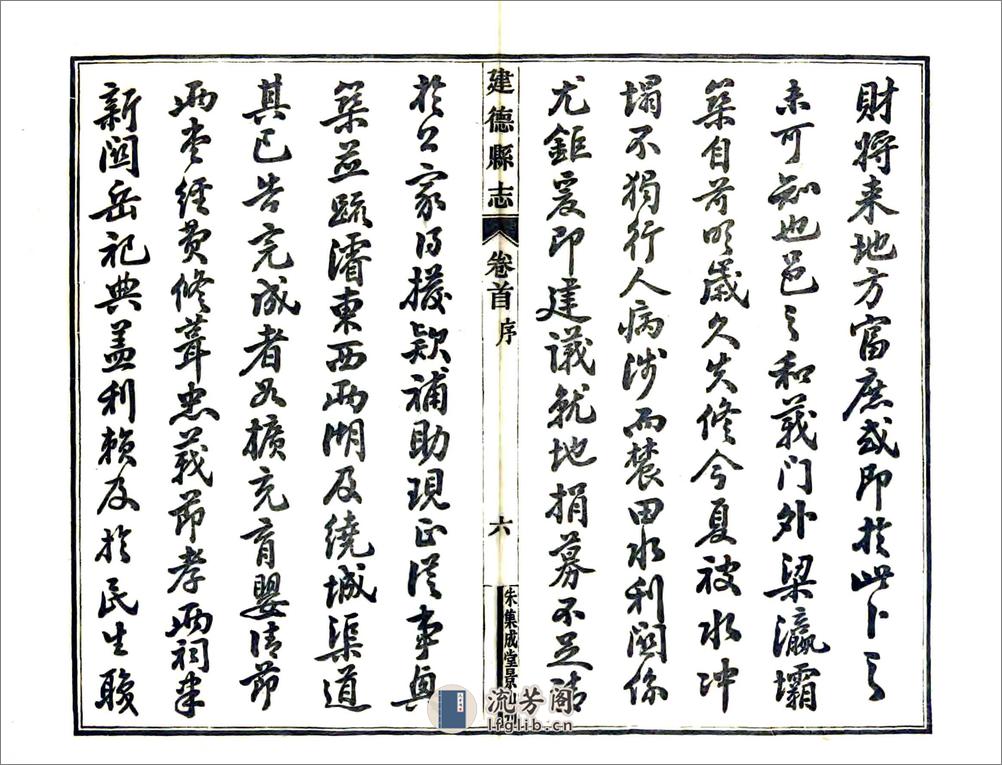 財將来地方富庶或即於此卜之
未可知也邑之和義门外梁瀛壩
築自前明歲久失修今夏被水冲
塌不獨行人病涉而農田水利関係
尤鉅爰即建議就地捐募不足請
建德縣志 卷首 序 六 朱集成堂景
於公家得撥款補助現正從事興
築並疏濬東西兩湖及繞城渠道
其已告完成者如擴充育嬰清節
兩堂經費修葺忠義節孝兩祠重
新関岳祀典蓋利賴及於民生聯
流芳阁
lfglib.cn